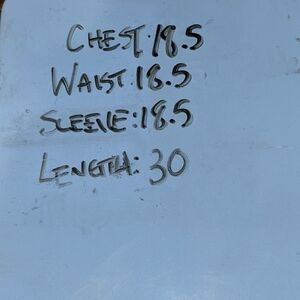 CHEST:18.5
WAIST:18.5
SLEEVE:18.5
LENGTH: 30